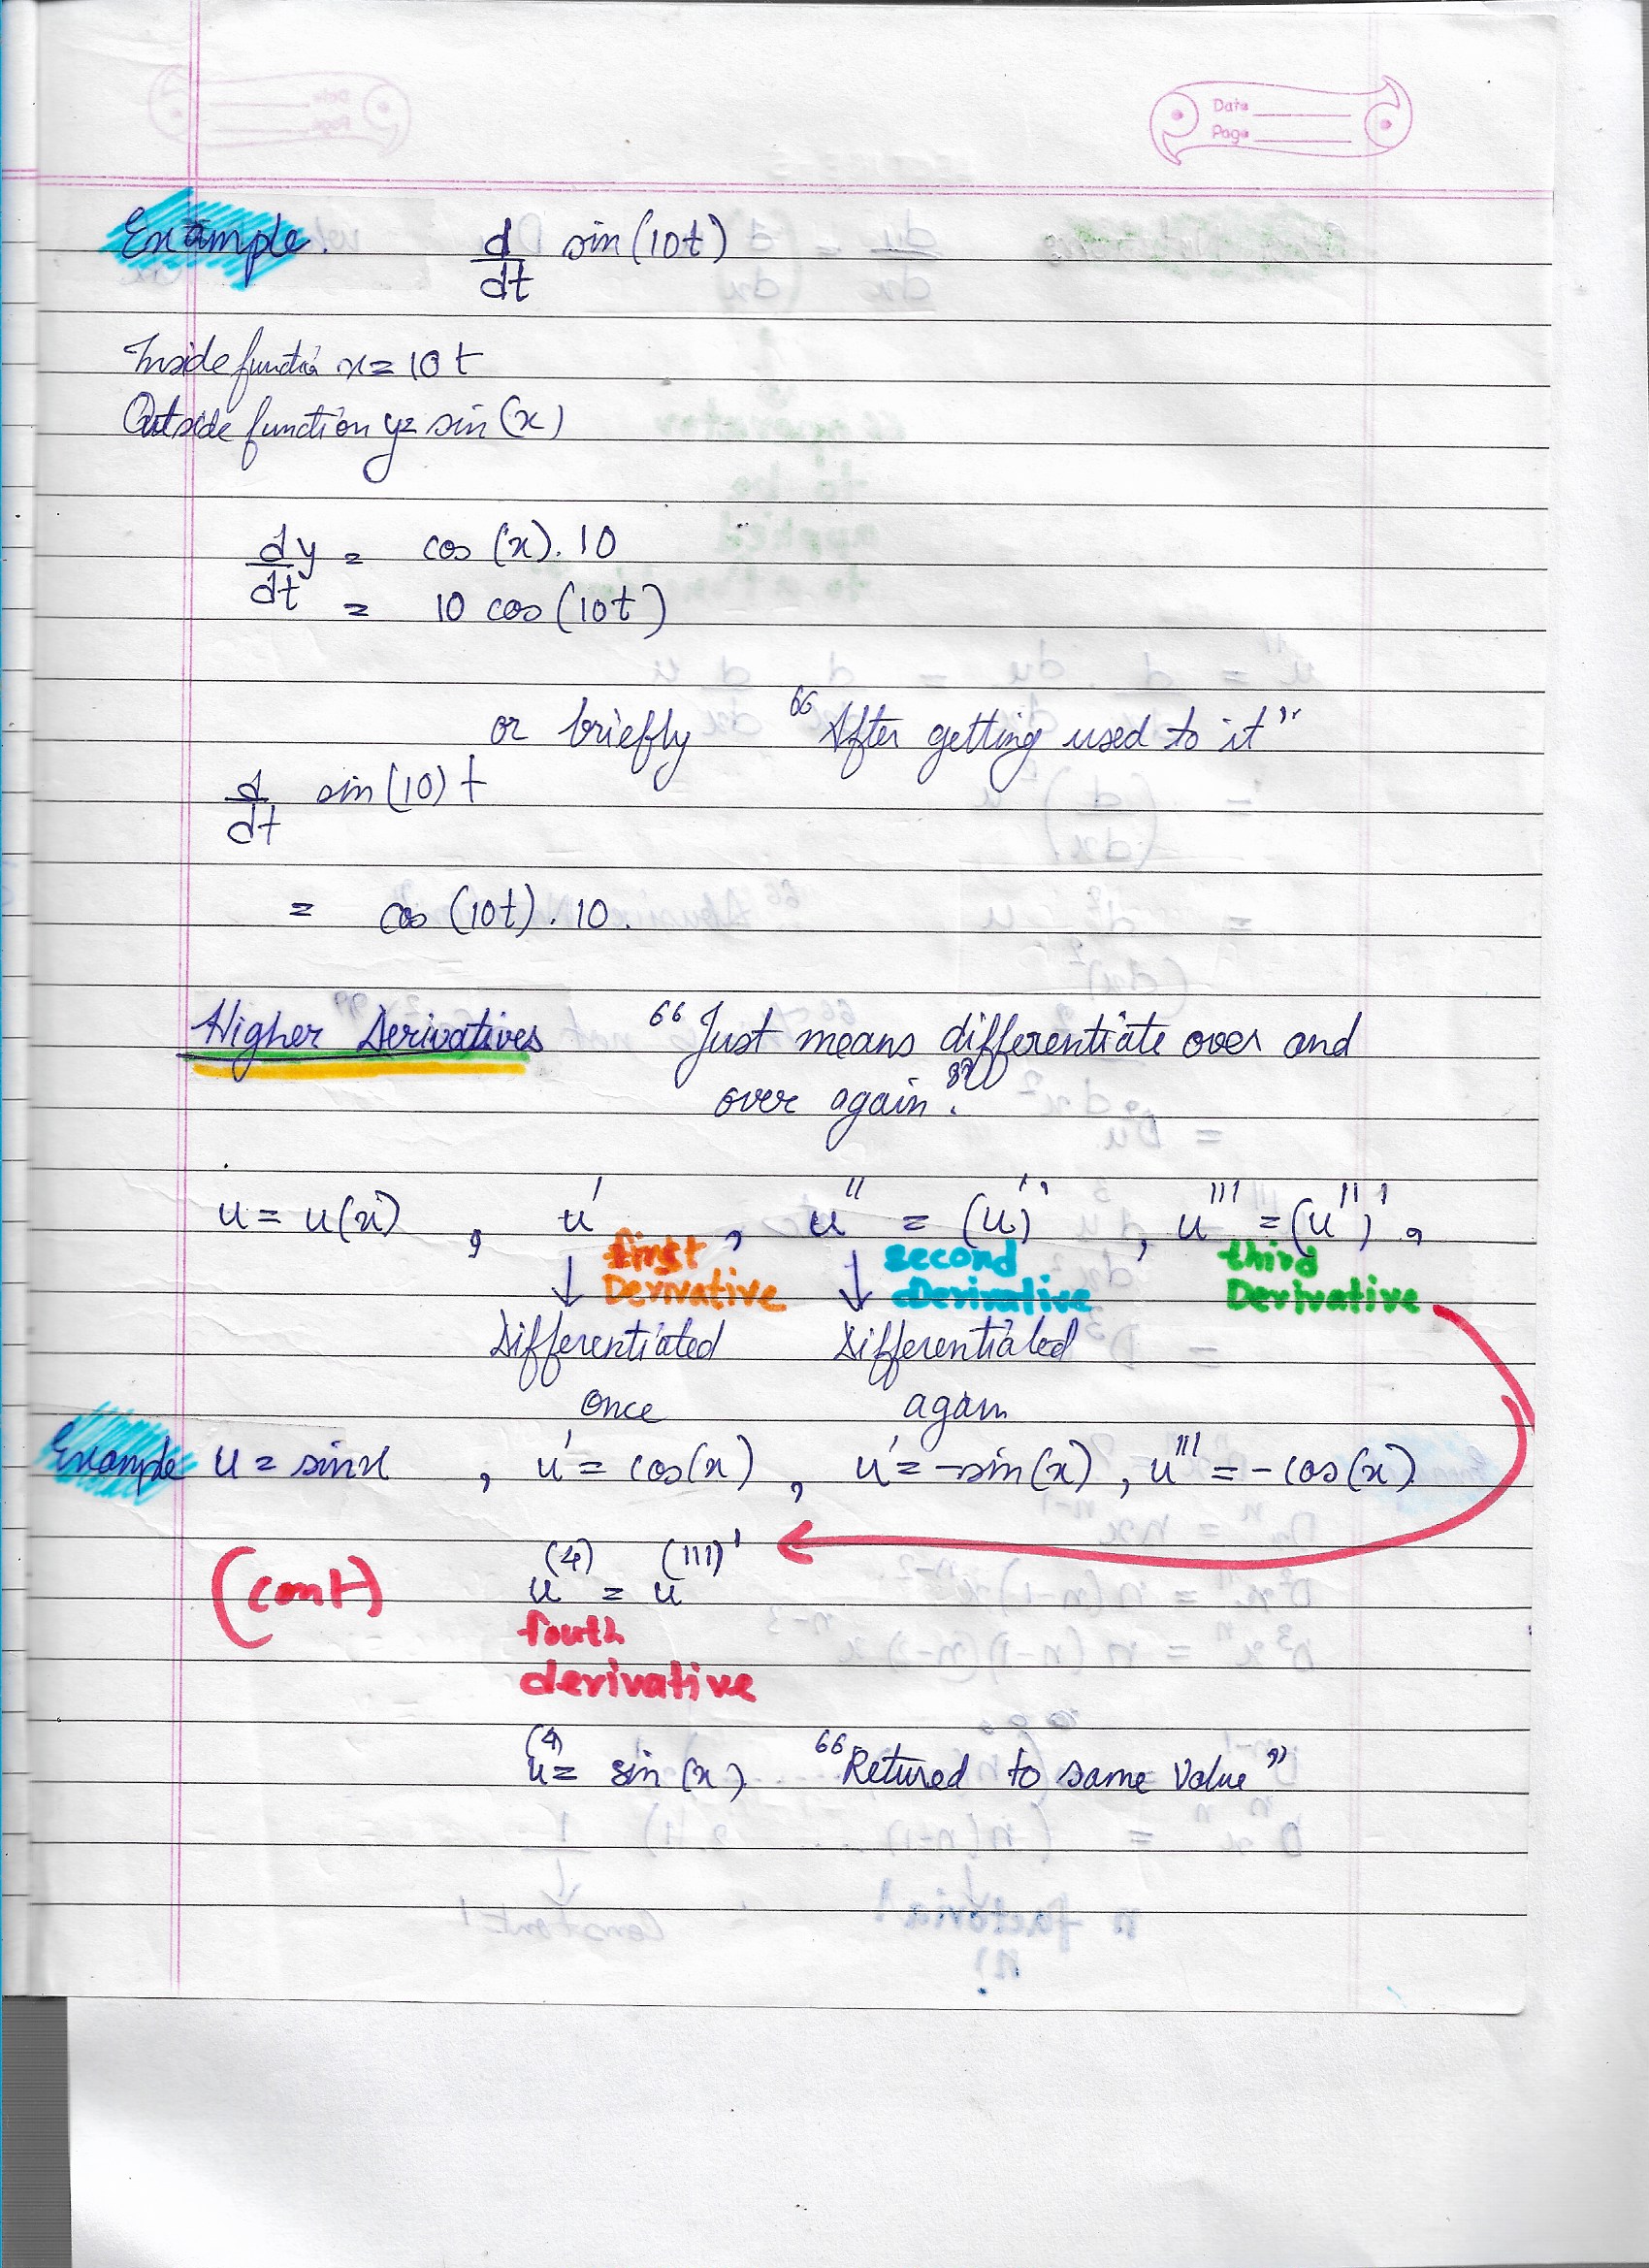 Date
Page
Example. d/dt sin(10t)
Inside function x = 10t
Outside function y = sin(x)
dy/dt = cos(x). 10
= 10 cos(10t)
or briefly "After getting used to it"
d/dt sin(10)t
= cos(10t). 10.
Higher Derivatives "Just means differentiate over and
over again."
u = u(x) , u' , u'' = (u')' , u''' = (u'')' ,
first second third
Derivative Derivative Derivative
Differentiated Differentiated
once again
Example u = sinx , u' = cos(x) , u' = -sin(x) , u''' = -cos(x)
(cont) u^(4) = u^(''')'
fouth
derivative
u^(4) = sin(x). "Retured to same value"